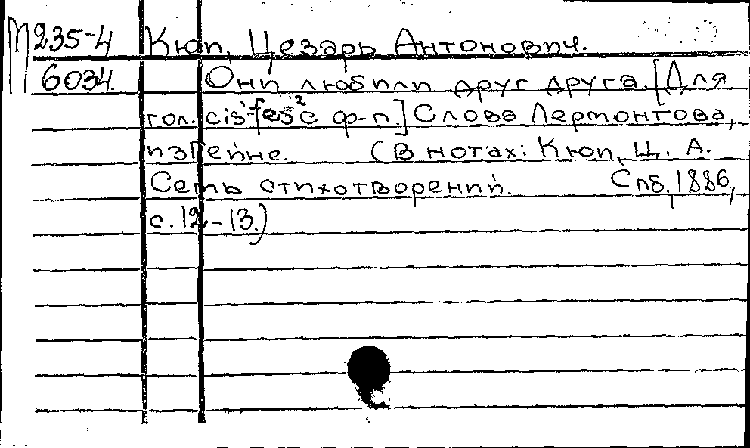 М 235-4 Кюи, Цезарь Антонович.
6034 Они любили друг друга. [Для
гол. cis¹-fis² с ф-п.] Слова Лермонтова,
из Гейне. (В нотах: Кюи, Ц. А.
Семь стихотворений. Спб, 1886,
с. 12-13.)